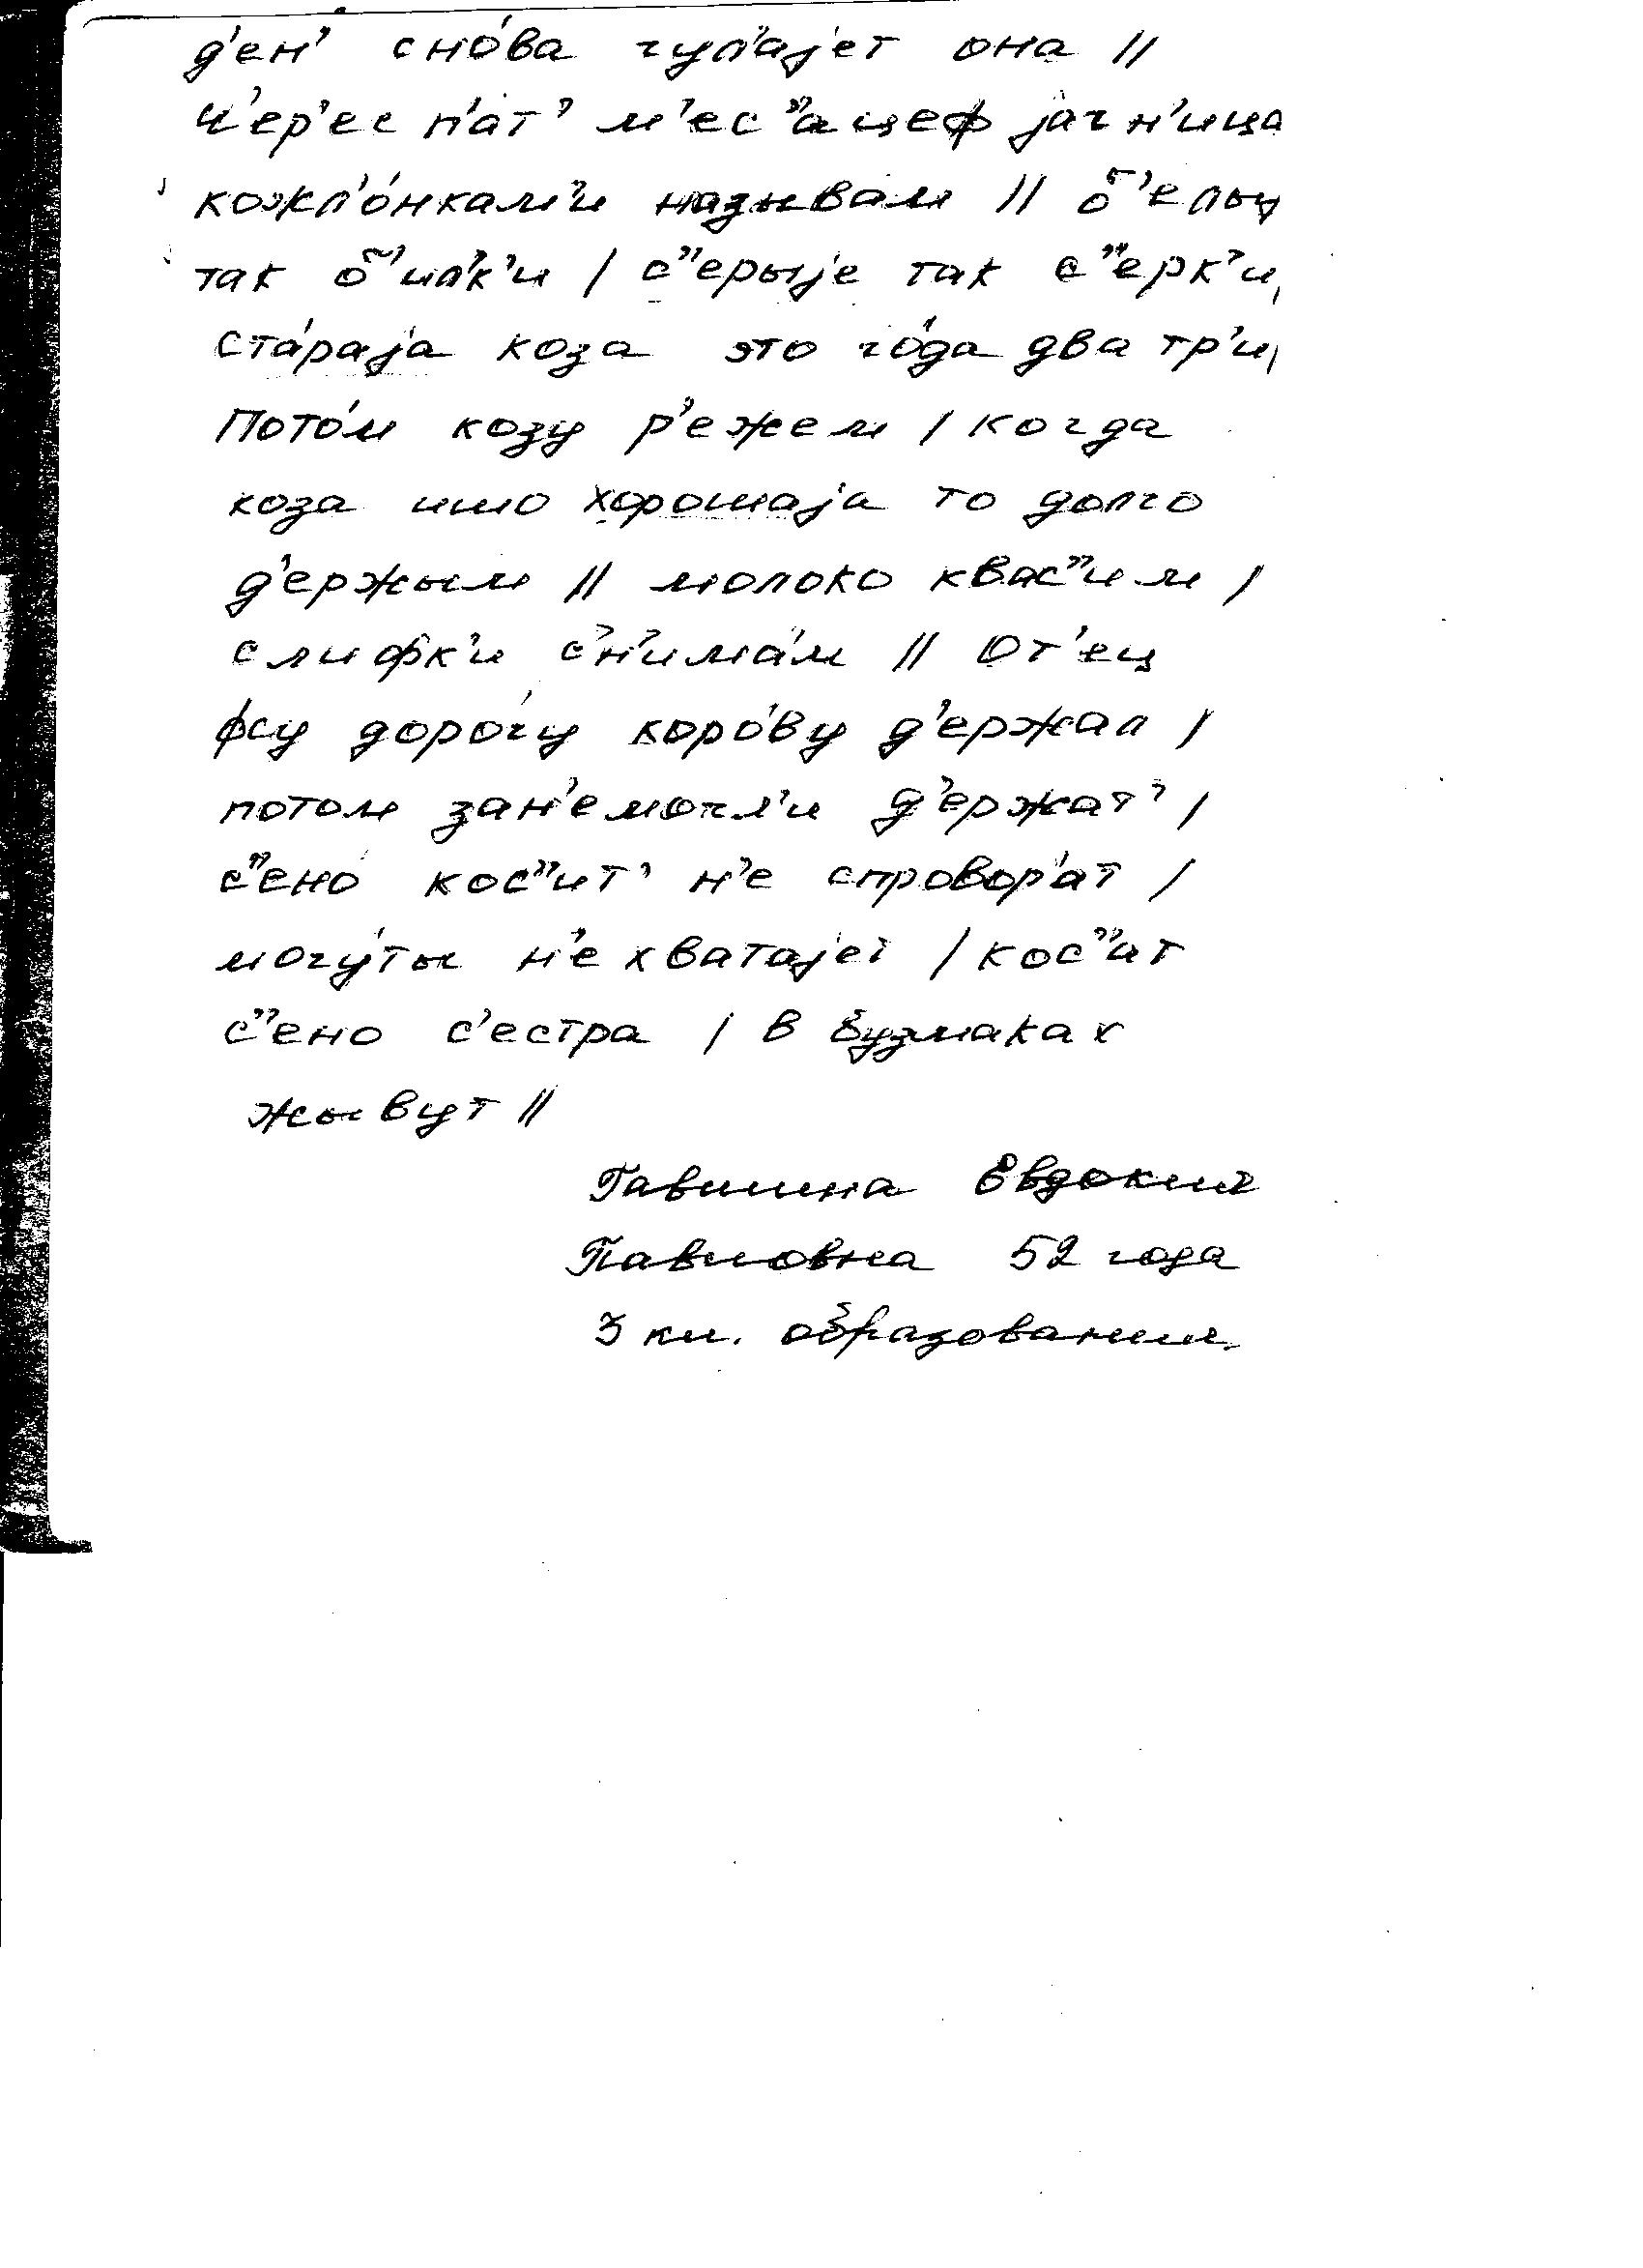 д'ен' сно́ва гул'аjет она //
ч'ер'ес п'ат' м'ес"ацеф jагн'ица
кожл'о́нкам'и называм // б'елы
так б'ил'к'и / с"ерыjе так с"ерк'и,
ста́раjа коза это го́да два тр'и,
пото́м козу р'ежем / когда
коза ишо хорошаjа то долго
д'ержым // молоко квас"им /
слифк'и с'н'има́м // От'ец
фсу доро́гу коро́ву д'ержал /
потом зан'емогл'и д'ержат' /
с"ено́ кос"ит' н'е спровор'ат /
могу́ты н'е хватаjет / кос"ат
с"ено с'естра / в бузмаках
жывут //
Гавшина Евдокия
Павловна 52 года
3 кл. образования.